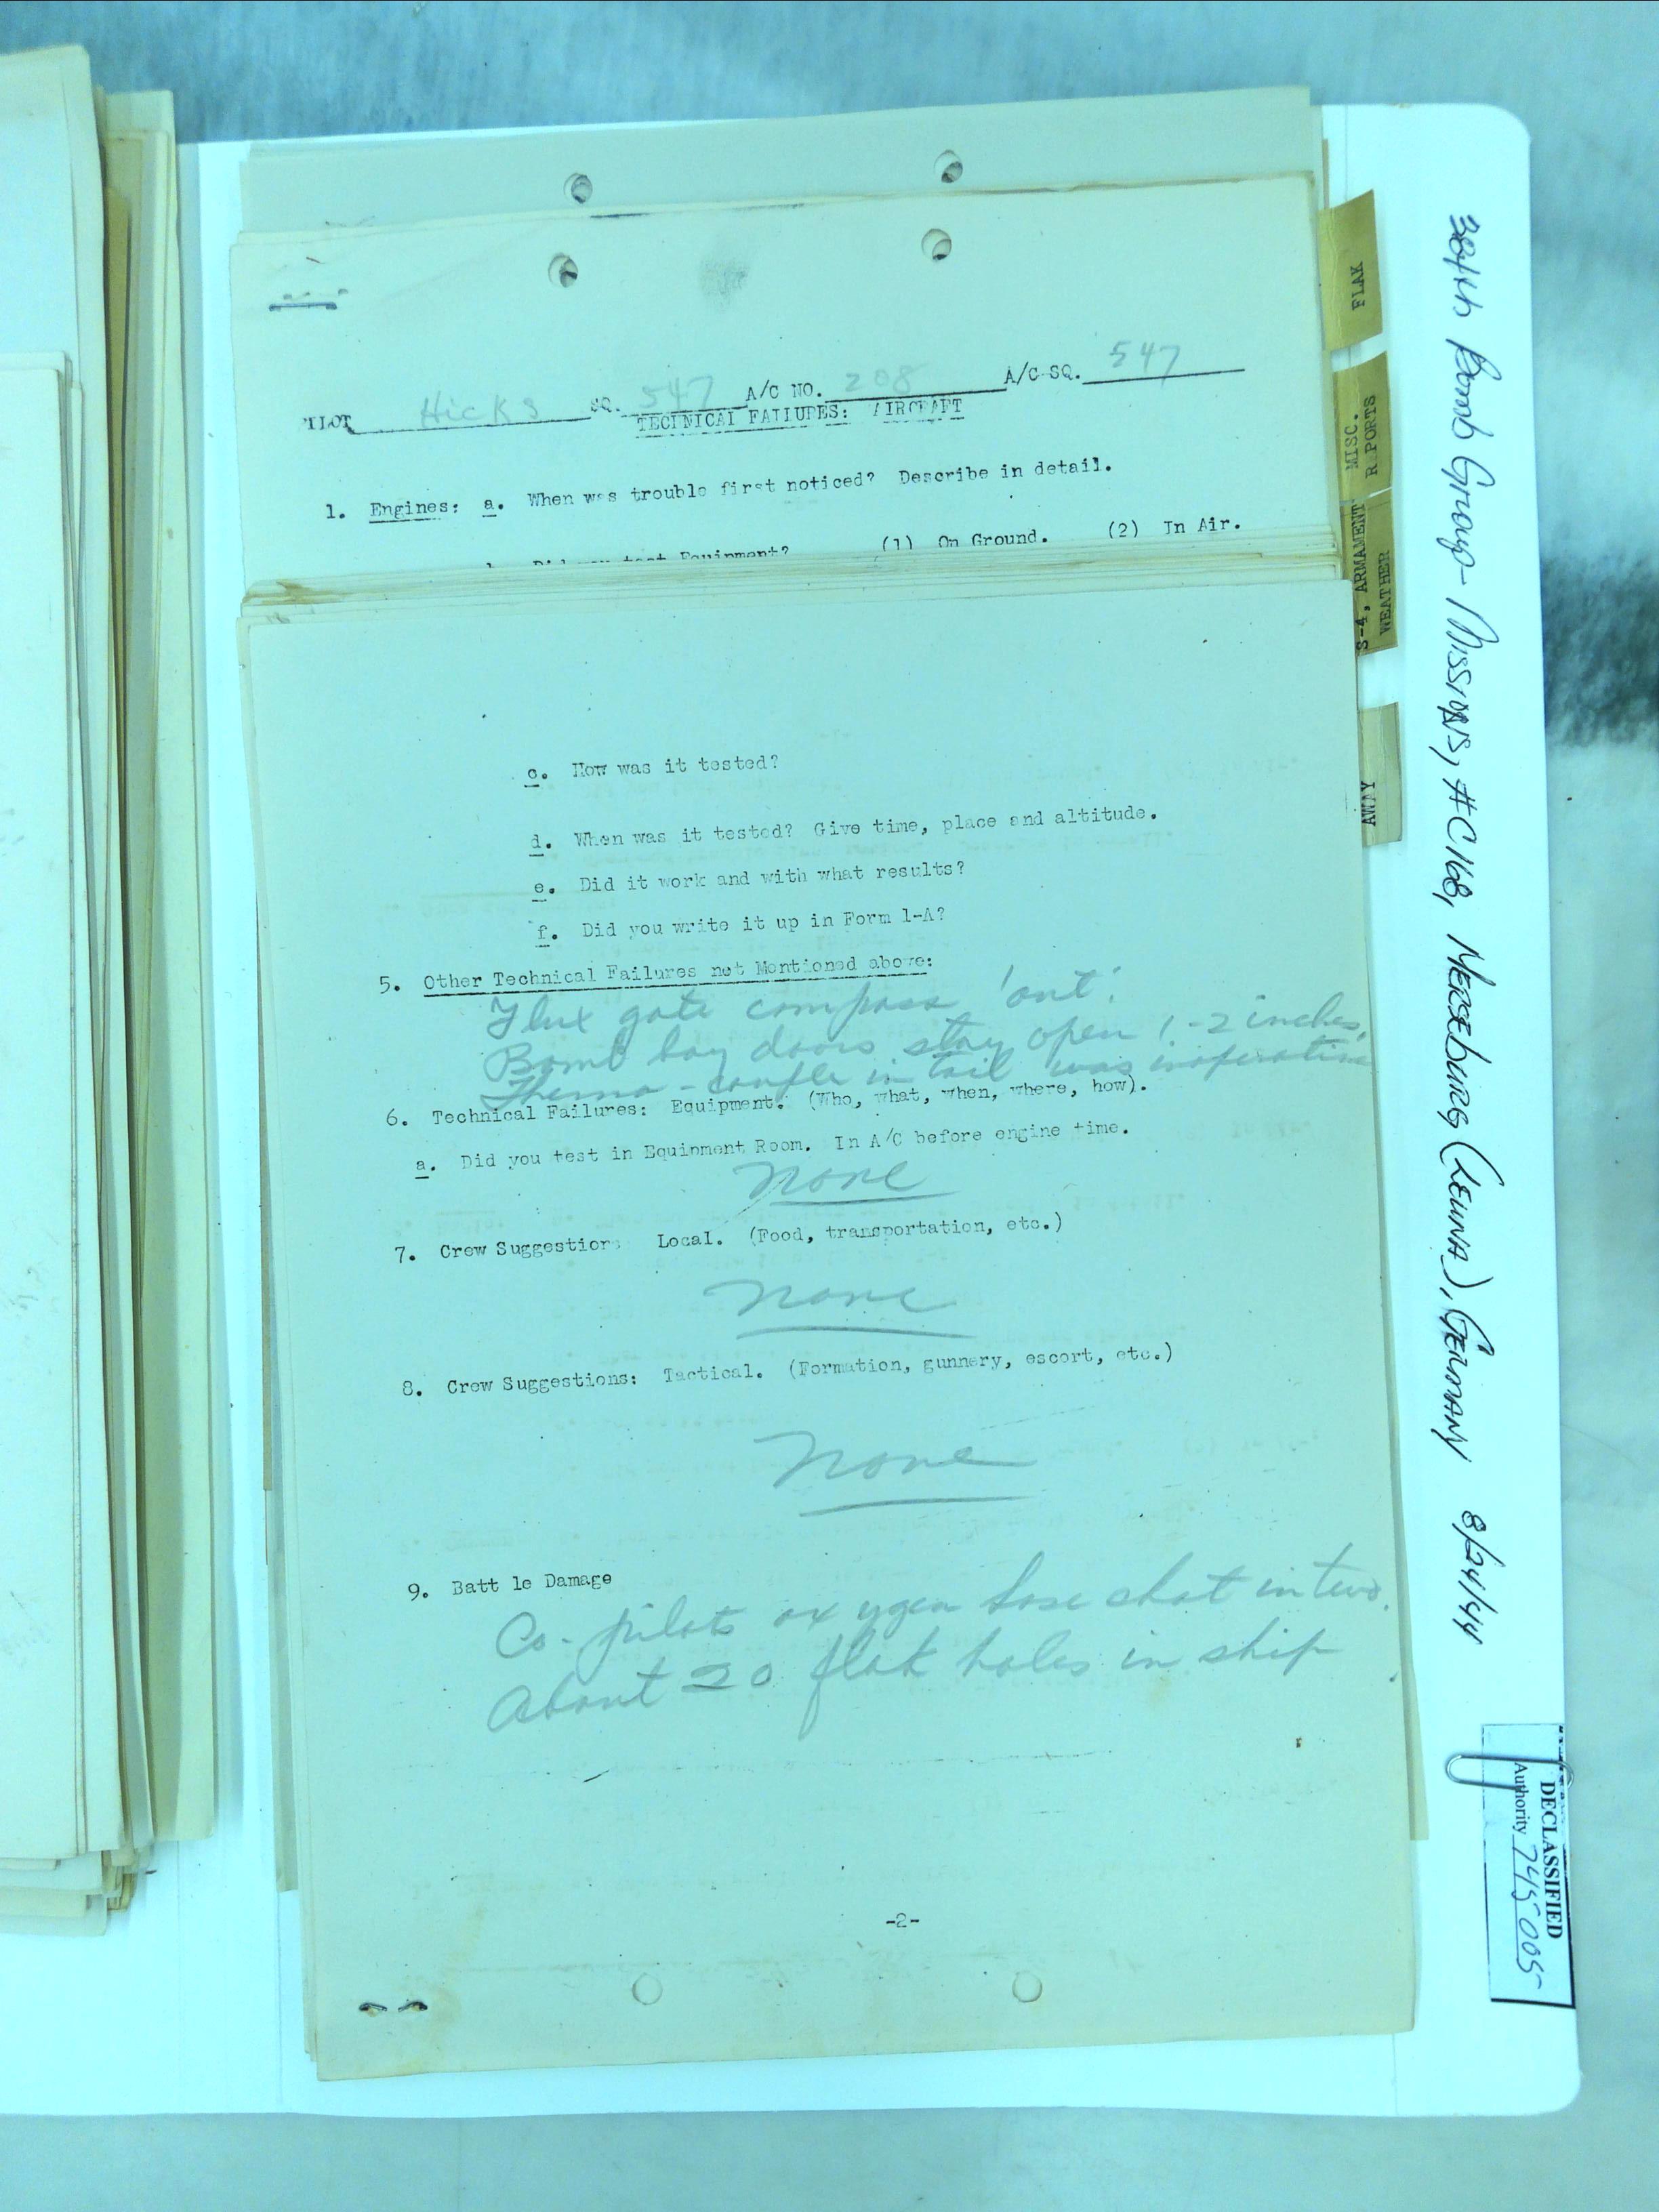 PILOT Hicks SQ. 547 A/C NO. 208 A/C SQ. 547
TECHNICAL FAILURES: AIRCRAFT
1. Engines: a. When was trouble first noticed? Describe in detail.
(1) On Ground. (2) In Air.
Did you test Equipment?
c. How was it tested?
d. When was it tested? Give time, place and altitude.
e. Did it work and with what results?
f. Did you write it up in Form 1-A?
5. Other Technical Failures not Mentioned above:
Flux gate compass 'out'.
Bomb bay doors stay open 1-2 inches.
Thermo-couple in tail was inoperative
6. Technical Failures: Equipment. (Who, what, when, where, how).
a. Did you test in Equipment Room. In A/C before engine time.
None
7. Crew Suggestions Local. (Food, transportation, etc.)
None
8. Crew Suggestions: Tactical. (Formation, gunnery, escort, etc.)
None
9. Batt le Damage
Co-pilots oxygen hose shot in two.
About 20 flak holes in ship
-2-
FLAK
MISC.
R PORTS
S-4, ARMAMENT
WEATHER
AWAY
384th Bomb Group - Missions, #C168, Merseburg (Leuna), Germany 8/24/44
DECLASSIFIED
Authority 745005